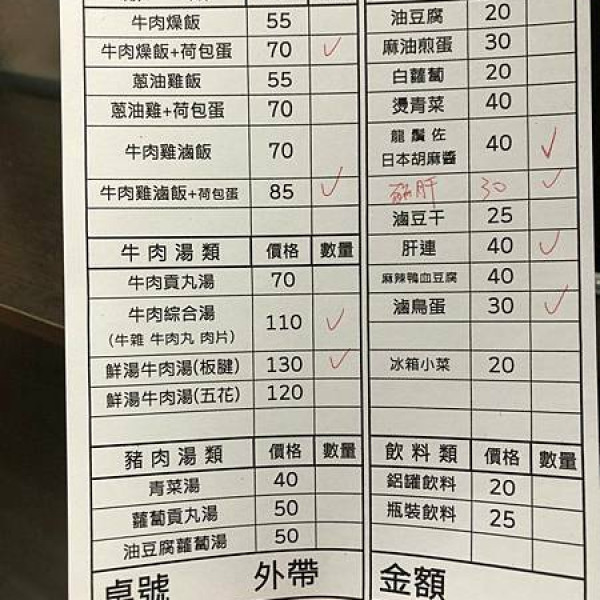 牛肉燥飯 55
牛肉燥飯+荷包蛋 70 ✓
蔥油雞飯 55
蔥油雞+荷包蛋 70
牛肉雞滷飯 70
牛肉雞滷飯+荷包蛋 85 ✓
牛肉湯類 價格 數量
牛肉貢丸湯 70
牛肉綜合湯 110 ✓
(牛雜 牛肉丸 肉片)
鮮湯牛肉湯(板腱) 130 ✓
鮮湯牛肉湯(五花) 120
豬肉湯類 價格 數量
青菜湯 40
蘿蔔貢丸湯 50
油豆腐蘿蔔湯 50
桌號 外帶
油豆腐 20
麻油煎蛋 30
白蘿蔔 20
燙青菜 40
龍鬚佐
日本胡麻醬 40 ✓
肝 30 ✓
滷豆干 25
肝連 40 ✓
麻辣鴨血豆腐 40
滷鳥蛋 30 ✓
冰箱小菜 20
飲料類 價格 數量
鋁罐飲料 20
瓶裝飲料 25
金額